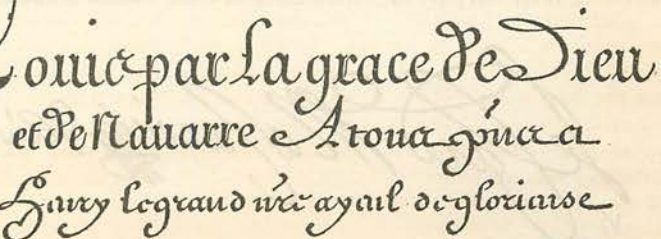 Louis par La grace De Dieu
et De Navarre A tous p̃ns a
Henry le grand nr̃e ayeul de glorieuse